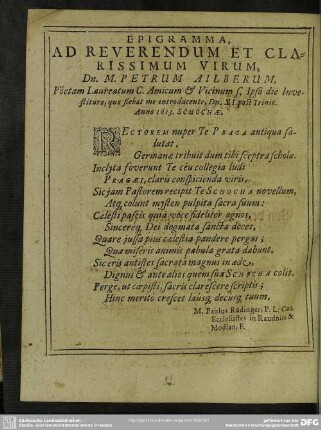 EPIGRAMMA,
AD REVERENDUM ET CLA-
RISSIMUM VIRUM,
Dn. M. PETRUM AILBERUM,
Poëtam Laureatum C. Amicum & Vicinum s. Ipsô die Inve-
stituræ, quæ fiebat me introducente, Dn. XI post Trinit.
Anno 1613. SCHOCHÆ.
RECTOREM nuper Te PRAGA antiqua sa-
lutat,
Germanæ tribuit dum tibi sceptra scholæ.
Inclyta foverunt Te ceu collegia ludi
PRAGÆI, claris constituenda viris,
Sic jam Pastorem recipit Te SCHOCHA novellum,
Atq; colunt mysten pulpita sacra suum:
Cælesti pascis quia voce fideliter agnos,
Sinceraq; Dei dogmata sancta doces,
Quare jussa pius cælestia pandere perges;
Quæ miseris animis pabula grata dabunt.
Sic eris antistes sacrata magnus in æde,
Dignus & ante alios quem sua SCHOCHA colit.
Perge, ut cœpisti, sacris clarescere scriptis;
Hinc meritò crescet lausq; decusq; tuum.
M. Paulus Rüdinger, P. L. Cæs.
Ecclesiastes in Raudnitz &
Modlau, F.